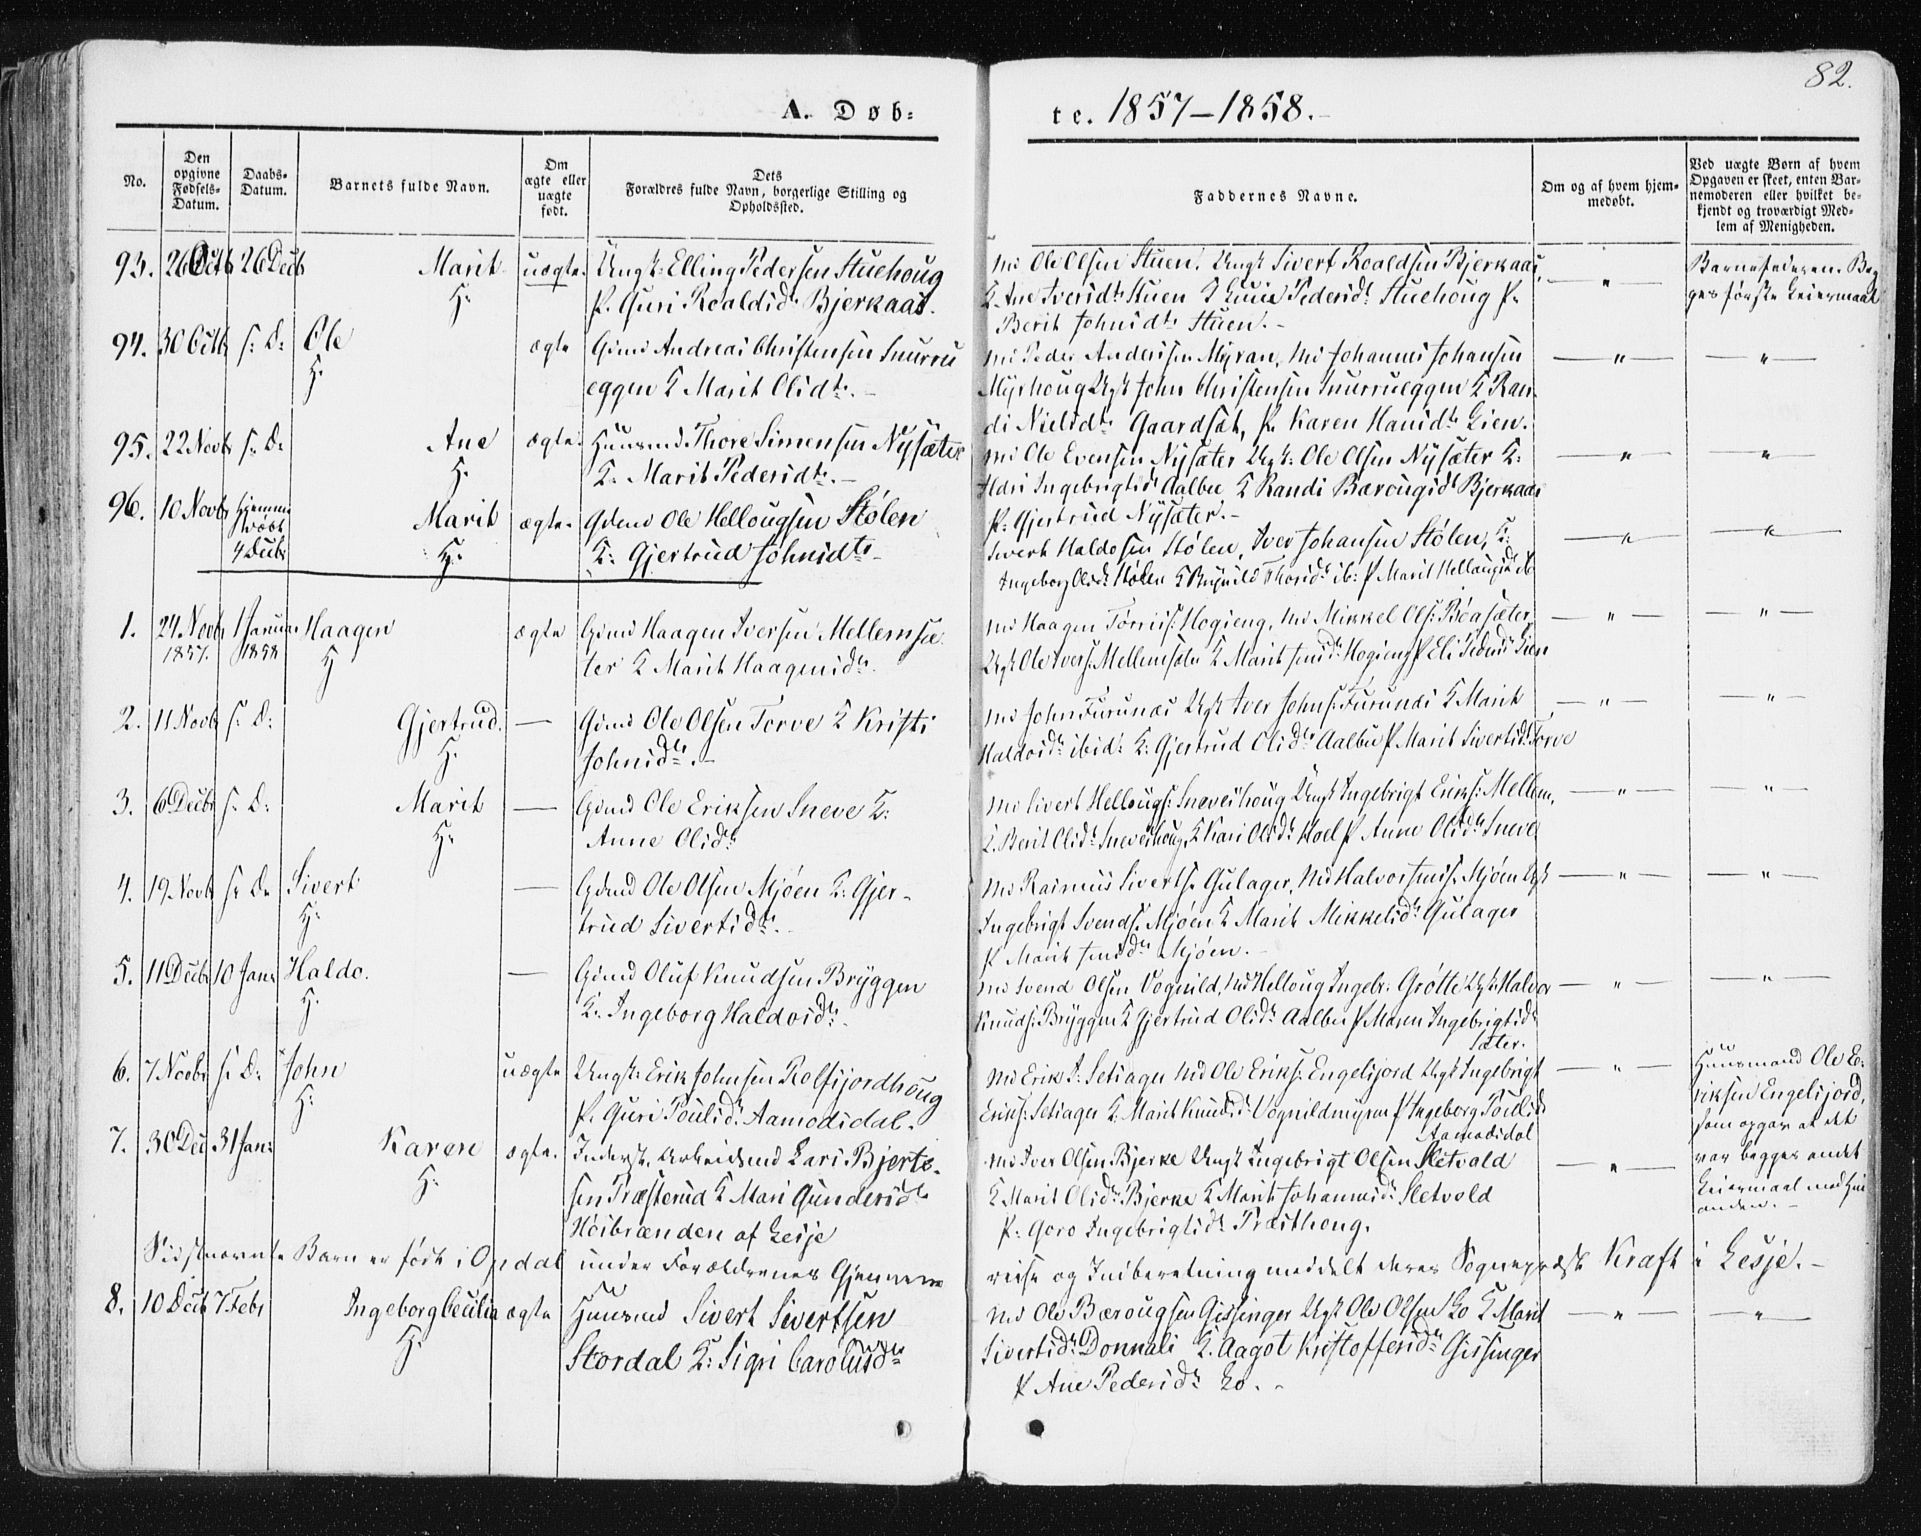 82.
A. Døb-
te. 1857–1858.
No.
Den opgivne Fødsels-Datum.
Daabs-Datum.
Barnets fulde Navn.
Om ægte eller uægte født.
Dets Forældres fulde Navn, borgerlige Stilling og Opholdssted.
Faddernes Navne.
Om og af hvem hjem-medøbt.
Ved uægte Børn af hvem Opgaven er skeet, enten Bar-nemoderen eller hvilket be-kjendt og troværdigt Med-lem af Menigheden.
93. 26 Octb 26 Decb Marit uægte Ungk: Elling Pedersen Stuehoug
H.
P. Guri Roaldsd. Bjerkaas.
Md Ole Olsen Stuen. Ungk Sivert Roaldsen Bjerkaas,
K. Ane Iversd. Stuen K Pedersd. Stuehoug P.
Berit Johnsd. Stuen.
Barnefaderen. Beg
ges første Leiermaal
94. 30 Octb s: D: Ole ægte Gdmd Andreas Christensen Snurru
H.
eggen K Marit Olsd.
Md Peder Anderssen Myran, Md Johannes Johansen
Myrhoug Ungk John Christensen Snurrueggen K Ran-
di Nielsd. Gaardsøt, P. Karen Hansd. Lien.
95. 22 Novb s: D: Ane ægte Huusmd. Thore Simensen Nysæter
H.
K. Marit Pedersd.
Md Ole Evensen Nysæter Ungk: Ole Olsen Nysæter K:
Ildri Ingebrigtsd. Aalbu K Randi Bærougsd. Bjerkaas
P. Gjertrud Nysæter.
96. 10 Novb Hjemme døbt 4 Decb Marit ægte Gdmd Ole Hellougsen Stølen
H.
K: Gjertrud Johnsd.
Sivert Haldosen Stølen, Iver Johansen Stølen, K:
Ingeborg Olsd. Stølen K Brynild Thorsd. ib: P Marit Hellougsd. ib
1. 24 Novb 1857. 1 Januar 1858 Haagen ægte Gdmd Haagen Iversen Mellemsæ
H
ter K Marit Haagensd.
Md Haagen Torris: Hogieng, Md Mikkel Ols: Bøasæter,
Ungk Ole Ivers: Mellemsæter K Marit Hogieng P Eli Lien
2. 11 Novb s: D: Gjertrud. — Gdmd Ole Olsen Torve K Kristi
H.
Johnsd.
Md John Furunæs Ungk Iver Johns: Furunæs K Marit
Haldosd. ibid: K: Gjertrud Olsd. Aalbu P Marit Sivertsd. Torve
3. 6 Decbr s: D: Marit — Gdmd Ole Eriksen Sneve K:
H.
Anne Olsd.
Md Sivert Hellougs: Sneveshoug Ungk Ingebrigt Eriks: Mellem,
K. Berit Olsd. Sneveshoug K Kari Olsd. Hoel P Anne Olsd. Sneve
4. 19 Novb s: D: Sivert — Gdmd Ole Olsen Mjøen K: Gjer-
H.
trud Sivertsd.
Md Rasmus Siverts: Gulager, Md Halvor Mjøen Ungk
Ingebrigt Svends: Mjøen K Marit Mikkelsd. Gulager
P Marit Mjøen.
5. 11 Decbr 10 Janr Haldo. — Gdmd Oluf Knudsen Bryggen
H.
K. Ingeborg Haldosd.
Md Svend Olsen Vognild, Md Helloug Ingebr: Grøtte Ungk: Halvor
Knuds: Bryggen K Gjertrud Olsd. Aalbu P Maren Ingebrigtsd.
Sæter.
6. 7 Novbr s: D: John uægte Ungk: Erik Johnsen Rolfsjordhoug
H.
P. Guri Poulsd. Aamodsdal.
Md Erik I: Setsager Md Ole Eriks: Engelsjord Ungk Ingebrigt
Eriks: Setsager K. Marit Knudsd. Vognildmyren P Ingeborg Poulsd.
Aamodsdal
Huusmand Ole E-
riksen Engelsjord,
som opgav at det
var begges andet
Leiermaal med hin
anden.
7. 30 Dec 31 Jan: Karen ægte. Inderst, Arbeidsmd Lars Bjerte-
H.
sen Træsterud K Mari Gundersd.
Høibrænden af Lesje
Md Iver Olsen Bjerke Ungk Ingebrigt Olsen Sletvold
K Marit Olsd. Bjerke K Marit Johannesd. Sletvold
P. Goro Ingebrigtsd. Træthoug.
Sidstnævnte Barn er født i Opdal under Forældrenes Gjennem
reise og Indberetning meddelt deres Sognepræst Kraft i Lesje.
8. 10 Decb 7 Febr Ingeborg Cecilia ægte Huusmd Sivert Sivertsen
H.
Stordal K: Sigri Carolusd.
Md Ole Bærougsen Gissinger Ungk Ole Olsen Lo K Marit
Sivertsd. Donnali K. Aagot Kristoffersd. Gissinger
P Ane Pedersd. Lo.